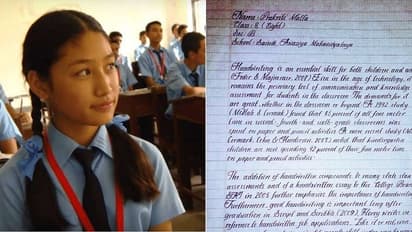 Name: Prakriti Malla
Class: 8 (Eight)
Sec: B
School: Sainik Awasiya Mahavidyalaya
Handwriting is an essential skill for both children and adu
(Feder & Majnemer, 2007). Even in the age of technology, it
remains the primary tool of communication and knowledge
assessment for students in the classroom. The demands for it
are great, whether in the classroom or beyond. A 1992 study
(McHale & Cermak) found that 85 percent of all fine motor
time in second- fourth- and sixth-grade classrooms was
spent on paper and pencil activities. A more recent study
Cermak, & Henderson, found that kindergarten
children are now spending 42 percent of their fine motor time
on paper and pencil activities.
The addition of handwritten components to many state
assessments and of a handwritten essay to the College Board
SAT in 2005 further emphasize the importance of handwriting
Furthermore, good handwriting is important long after
graduation in
handwritten job applications.